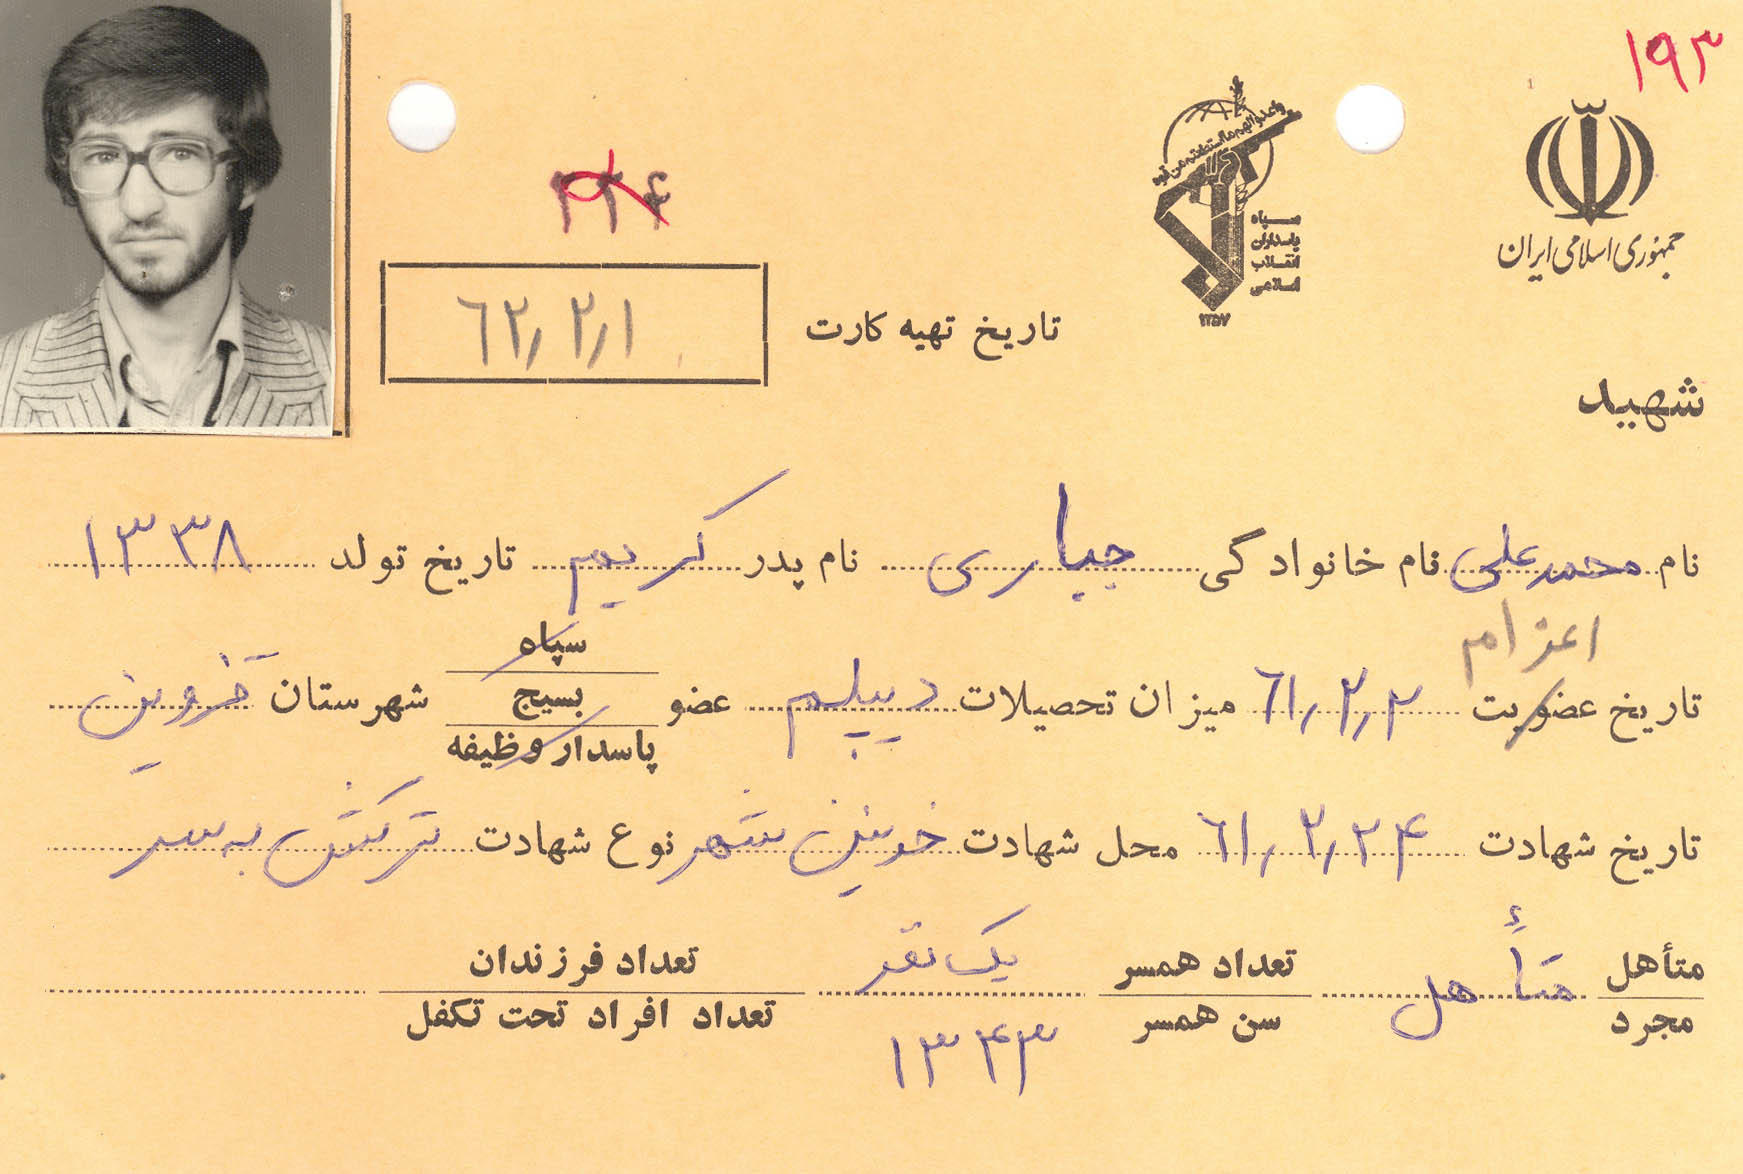 ۱۹۳
جمهوری اسلامی ایران
واعدوا لهم ما استطعتم من قوة
سپاه
پاسداران
انقلاب
اسلامی
۱۳۵۷
تاریخ تهیه کارت ۶۲٫۲٫۱
شهید
نام محمدعلی نام خانوادگی جباری نام پدر کریم تاریخ تولد ۱۳۳۸
اعزام
تاریخ عضویت ۶۱٫۲٫۲ میزان تحصیلات دیپلم عضو سپاه بسیج پاسدار وظیفه شهرستان قزوین
تاریخ شهادت ۶۱٫۲٫۲۴ محل شهادت خونین شهر نوع شهادت ترکش به سر
متأهل متأهل تعداد همسر یک نفر تعداد فرزندان
مجرد سن همسر ۱۳۴۳ تعداد افراد تحت تکفل